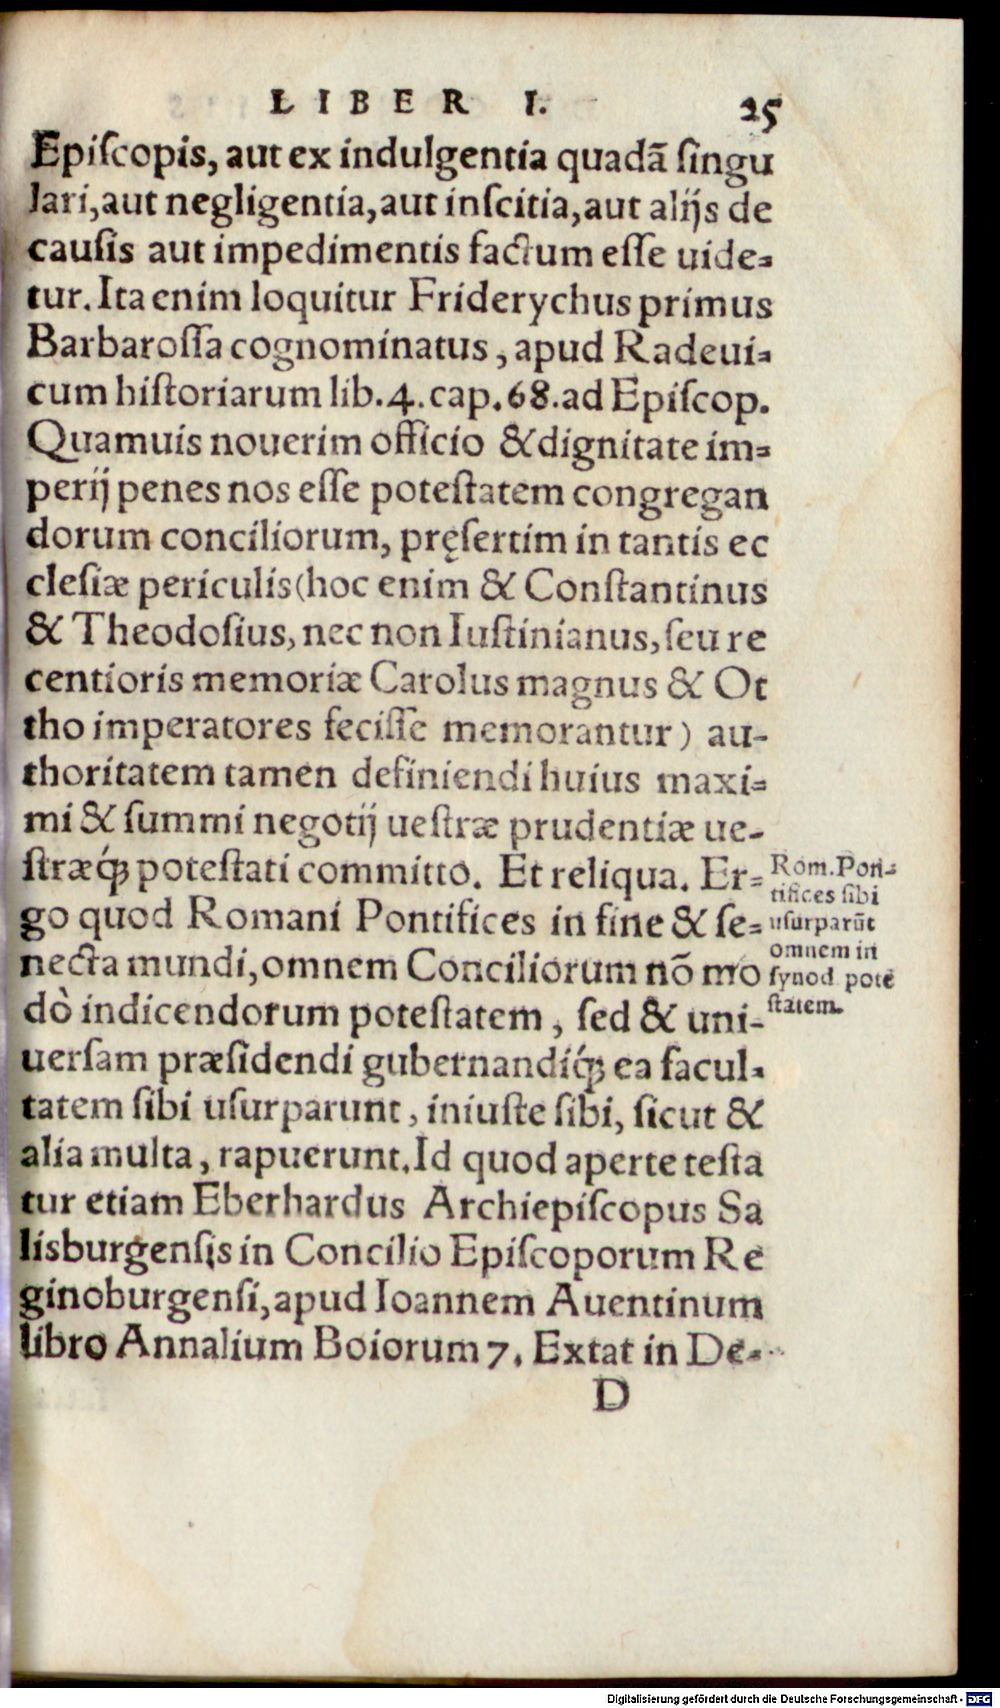 LIBER I. 25
Epiſcopis, aut ex indulgentia quadã ſingu
lari, aut negligentia, aut inſcitia, aut alijs de
cauſis aut impedimentis factum eſſe uide-
tur. Ita enim loquitur Friderychus primus
Barbaroſſa cognominatus, apud Radeui-
cum hiſtoriarum lib. 4. cap. 68. ad Epiſcop.
Quamuis nouerim officio & dignitate im-
perij penes nos eſſe poteſtatem congregan
dorum conciliorum, pręſertim in tantis ec
cleſiæ periculis (hoc enim & Conſtantinus
& Theodoſius, nec non Iuſtinianus, ſeu re
centioris memoriæ Carolus magnus & Ot
tho imperatores feciſſe memorantur) au-
thoritatem tamen definiendi huius maxi-
mi & ſummi negotij ueſtræ prudentiæ ue-
ſtræq́ꝫ poteſtati committo. Et reliqua. Er-
go quod Romani Pontifices in fine & ſe-
necta mundi, omnem Conciliorum nõ mo
dò indicendorum poteſtatem, ſed & uni-
uerſam præſidendi gubernandiq́ꝫ ea facul-
tatem ſibi uſurparunt, iniuſte ſibi, ſicut &
alia multa, rapuerunt. Id quod aperte teſta
tur etiam Eberhardus Archiepiſcopus Sa
lisburgenſis in Concilio Epiſcoporum Re
ginoburgenſi, apud Ioannem Auentinum
libro Annalium Boiorum 7. Extat in De-
D
Rom. Pon-
tifices ſibi
uſurparũt
omnem in
ſynod. potẽ
ſtatem.
Digitalisierung gefördert durch die Deutsche Forschungsgemeinschaft - DFG